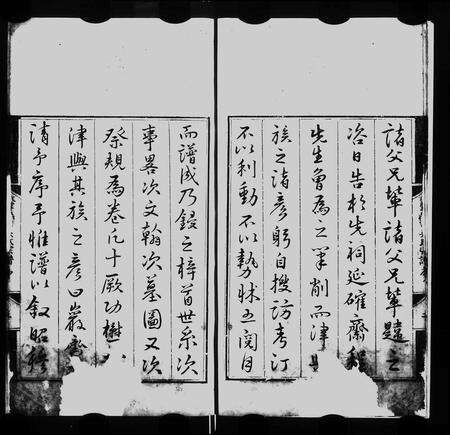 諸父兄輩諸父兄輩韙之
洽日告於先祠延確齋程
先生魯為之筆削而津
族之諸彥躬自搜訪考訂
不以利動不以勢怵五閱月
而譜成乃鋟之梓首世系次
事畧次文翰次墓圖又次
祭規為卷凡十厥功懋
津與其族之彥曰巖
請予序予惟譜以敘昭穆